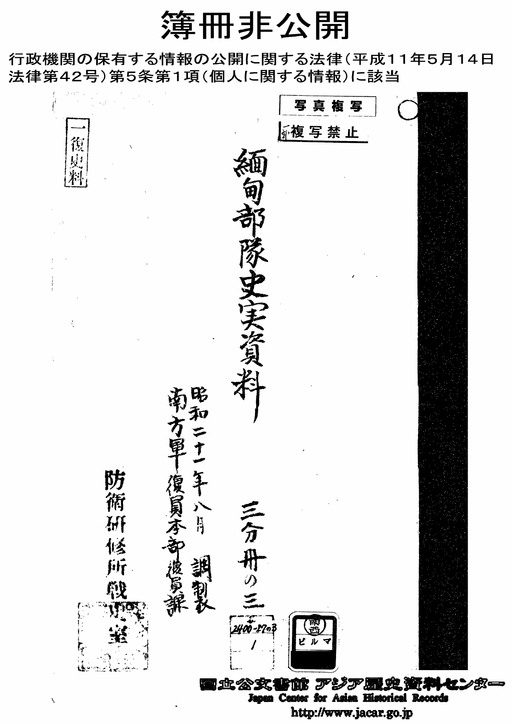 簿冊非公開
行政機関の保有する情報の公開に関する法律(平成11年5月14日
法律第42号)第5条第1項(個人に関する情報)に該当
写真複写
一部複写禁止
一復史料
緬甸部隊史実資料
三分冊の三
昭和二十一年八月 調製
南方軍復員本部復員課
防衛研修所戦史室
1
南西
ビルマ
国立公文書館 アジア歴史資料センター
Japan Center for Asian Historical Records
http://www.jacar.go.jp